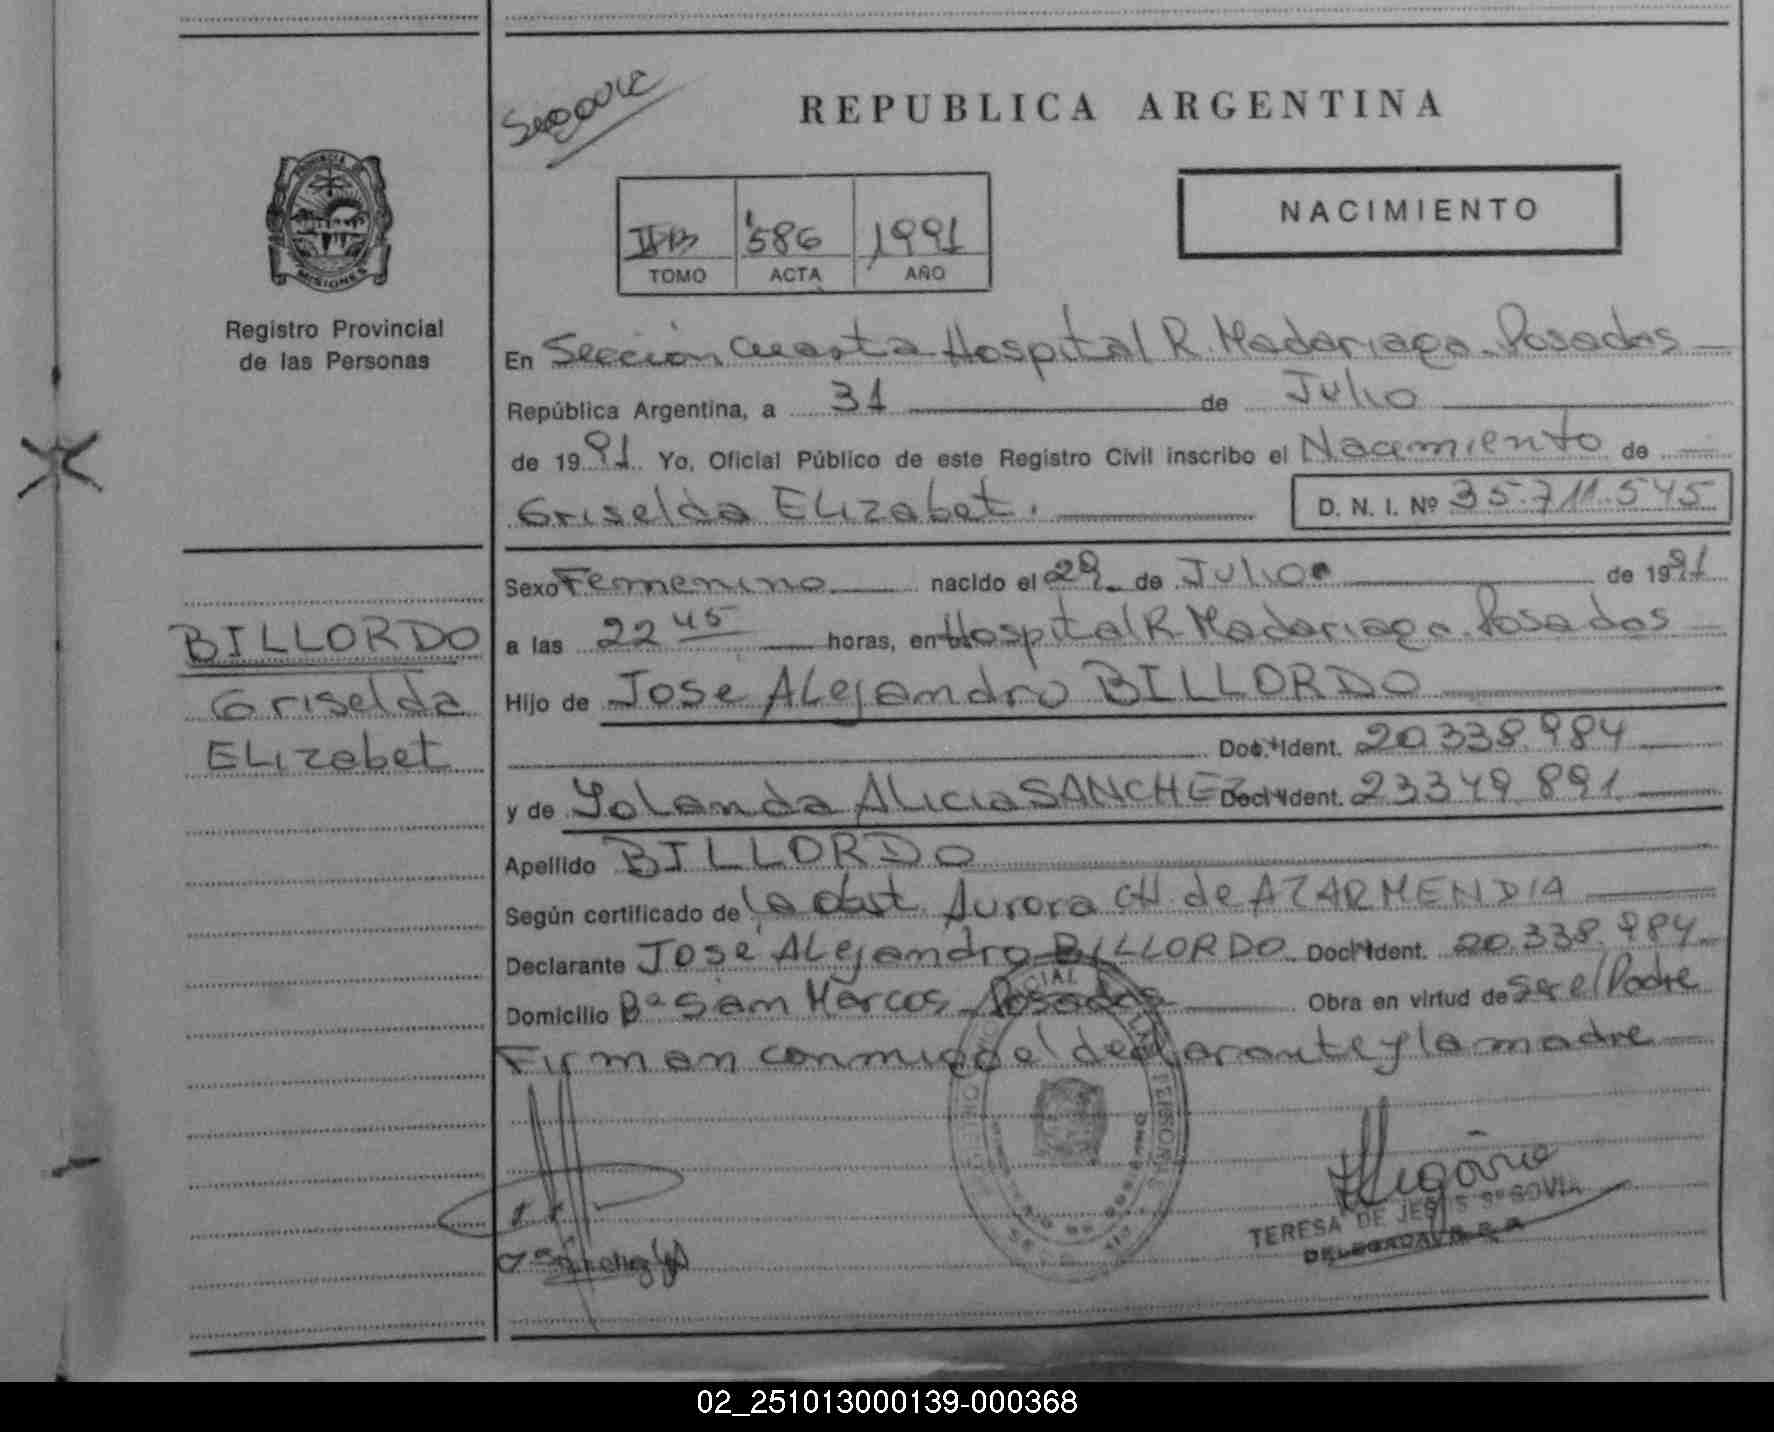 REPUBLICA ARGENTINA
NACIMIENTO
586 1991
TOMO ACTA AÑO
PROVINCIA DE MISIONES
Registro Provincial
de las Personas
En Sección Cuarta Hospital R. Madariaga. Posadas
República Argentina, a 31 de Julio
de 1991. Yo, Oficial Público de este Registro Civil inscribo el Nacimiento de
Griselda ELizabet. D. N. I. Nº 35.711.545
Sexo Femenino nacido el 29 de Julio de 1991
a las 22 45 horas, en Hospital R. Madariaga. Posadas
Hijo de Jose ALejandro BILLORDO
Doc. Ident. 20.338.984
y de Yolanda ALicia SANCHEZ Doc. Ident. 23349.891
Apellido BILLORDO
Según certificado de la obst. Aurora CH. de AZARMENDIA
Declarante José ALejandro BILLORDO. Doc. Ident. 20.338.984
Domicilio Bº San Marcos Posadas Obra en virtud de Ser el Padre
Firman conmigo el declarante y la madre
BILLORDO
Griselda
ELizabet
TERESA DE JESUS SEGOVIA
DELEGADA
02_251013000139-000368